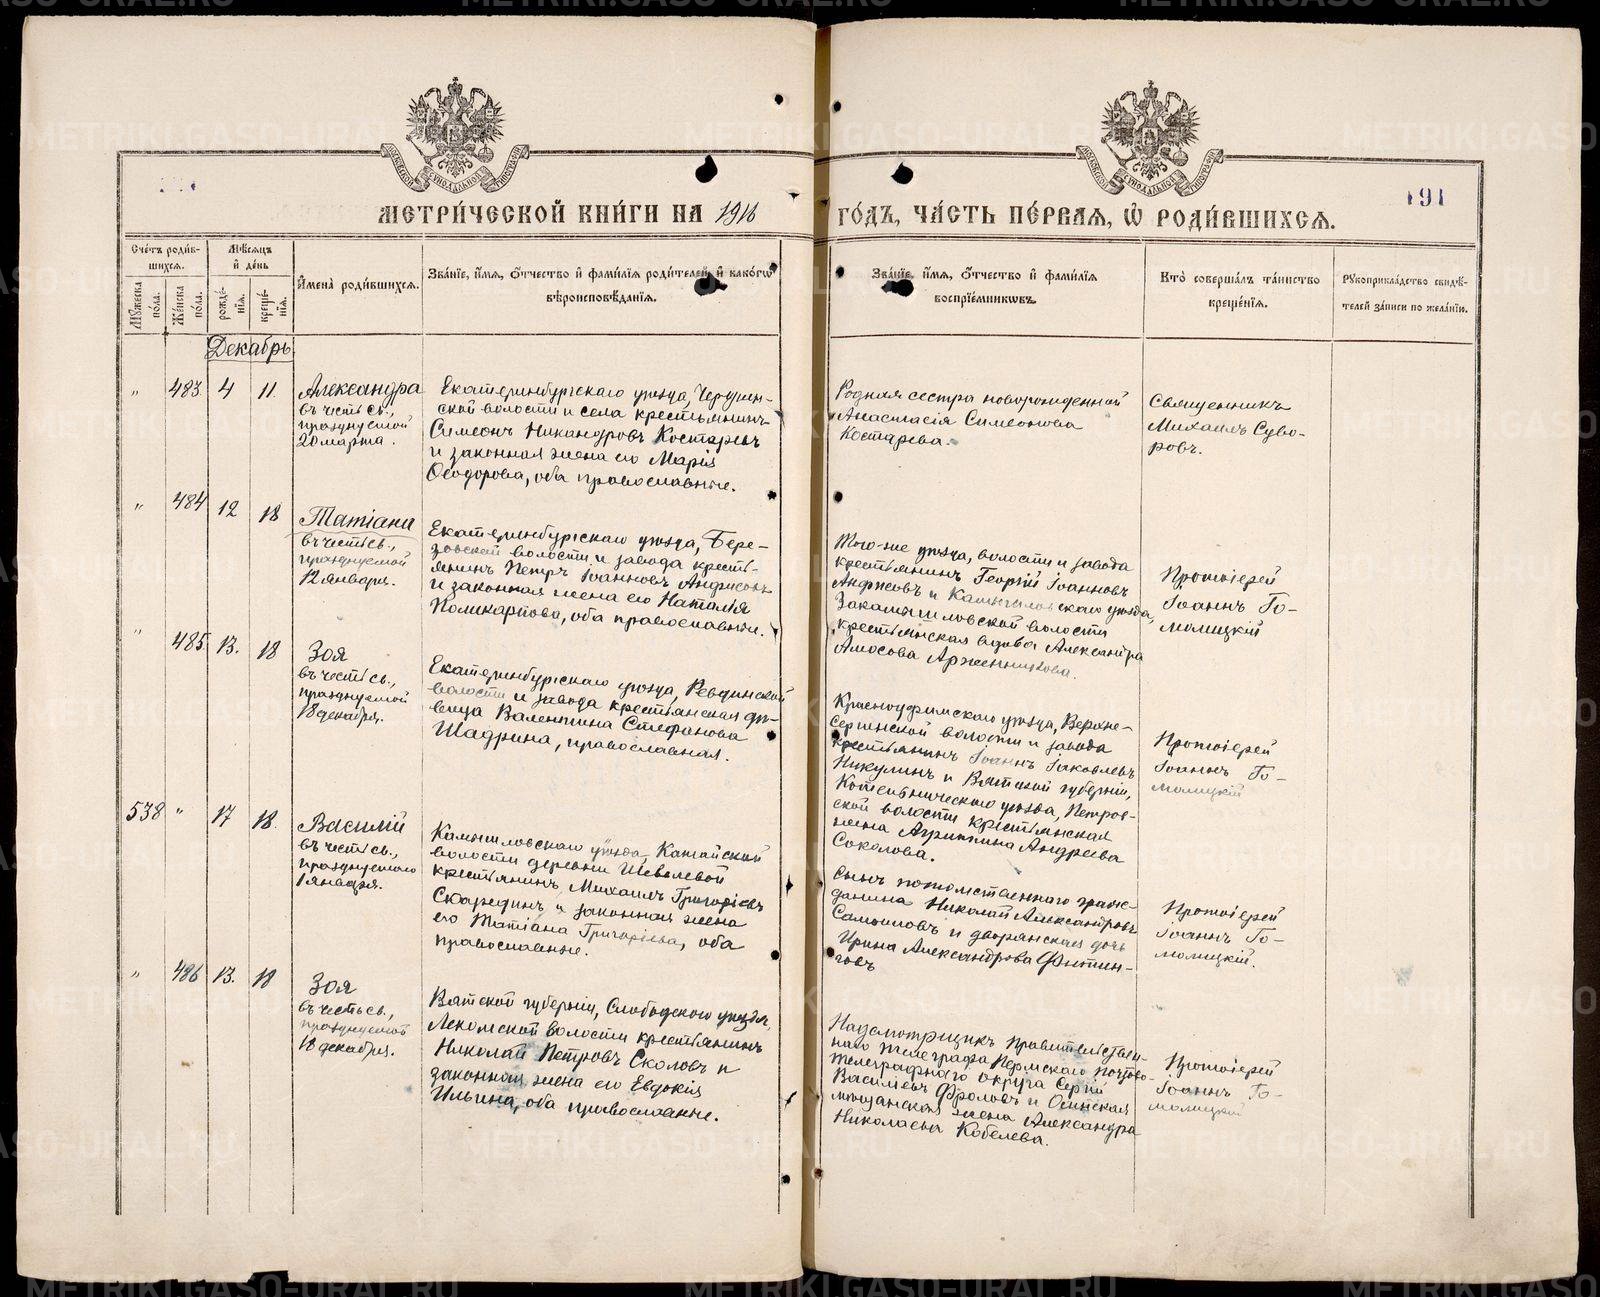 МЕТРИ́ЧЕСКОЙ КНИ́ГИ НА 1916 ГО́ДЪ, ЧА́СТЬ ПЕ́РВАЯ, Ѡ҆ РОДИ́ВШИХСЯ.
191
Сче́тъ роди́в-
шихся.
Му́жеска по́ла.
Же́нска по́ла.
Мѣ́сяцъ
и҆ де́нь
рожде́-
нїя.
креще́-
нїя.
И҆мена̀ роди́вшихся.
Зва́нїе, и҆́мя, ѻ҆́тчество и҆ фами́лїя роди́телей, и҆ како́гѡ
вѣроисповѣ́данїя.
Зва́нїе, и҆́мя, ѻ҆́тчество и҆ фами́лїя
воспрїе́мниковъ.
Кто̀ соверша́лъ та́инство
креще́нїя.
Рукоприкла́дство свидѣ́-
телей за́писи по жела́нїю.
Декабрь
" 483 4 11
Александра
въ честь св.,
празднуемой
20 марта.
Екатеринбургскаго уѣзда,
ской волости и села крестьянинъ
Симеонъ Никандровъ Костаревъ
и законная жена его Марія
Ѳеодорова, оба православные.
Родная сестра новорожденной
Анастасія Симеонова
Костарева.
Священникъ
Михаилъ Суво-
ровъ.
" 484 12 18
Татіана
въ честь св.,
празднуемой
12 января.
Екатеринбургскаго уѣзда, Бере-
зовской волости и завода кресть-
янинъ Петръ Іоанновъ
и законная жена его Наталія
Поликарпова, оба православные.
Того-же уѣзда, волости и завода
крестьянинъ Георгій Іоанновъ
и Камышловскаго уѣзда,
Закамышловской волости
крестьянская вдова Александра
Амосова
Протоіерей
Іоаннъ Го-
молицкій
" 485 13. 18
Зоя
въ честь св.,
празднуемой
18 декабря.
Екатеринбургскаго уѣзда, Ревдинской
волости и завода крестьянская дѣ-
вица Валентина Стефанова
Шадрина, православная.
Красноуфимскаго уѣзда, Верхне-
Сергинской волости и завода
крестьянинъ Іоаннъ Іаковлевъ
Никулинъ и Вятской губерніи,
Котельническаго уѣзда, Петров-
ской волости крестьянская
жена Агриппина Андреева
Соколова.
Протоіерей
Іоаннъ Го-
молицкій
538 " 17 18
Василій
въ честь св.,
празднуемаго
1 января.
Камышловскаго уѣзда, Катайской
волости деревни Шевелевой
крестьянинъ Михаилъ Григорьевъ
и законная жена
его Татіана Григорьева, оба
православные.
Сынъ потомственнаго граж-
данина Николай Александровъ
Самойловъ и дворянская дочь
Ирина Александрова Фитин-
говъ
Протоіерей
Іоаннъ Го-
молицкій.
" 486 13. 18
Зоя
въ честь св.,
празднуемой
18 декабря.
Вятской губерніи, Слободского уѣзда,
Лекомской волости крестьянинъ
Николай Петровъ Сколовъ и
законная жена его Евдокія
Ильина, оба православные.
Надсмотрщикъ Правительствен-
наго телеграфа Пермскаго Почтово-
телеграфнаго округа Сергій
Василіевъ Фроловъ и Осинская
мѣщанская жена Александра
Николаева Кобелева.
Протоіерей
Іоаннъ Го-
молицкій
METRIKI.GASO-URAL.RU